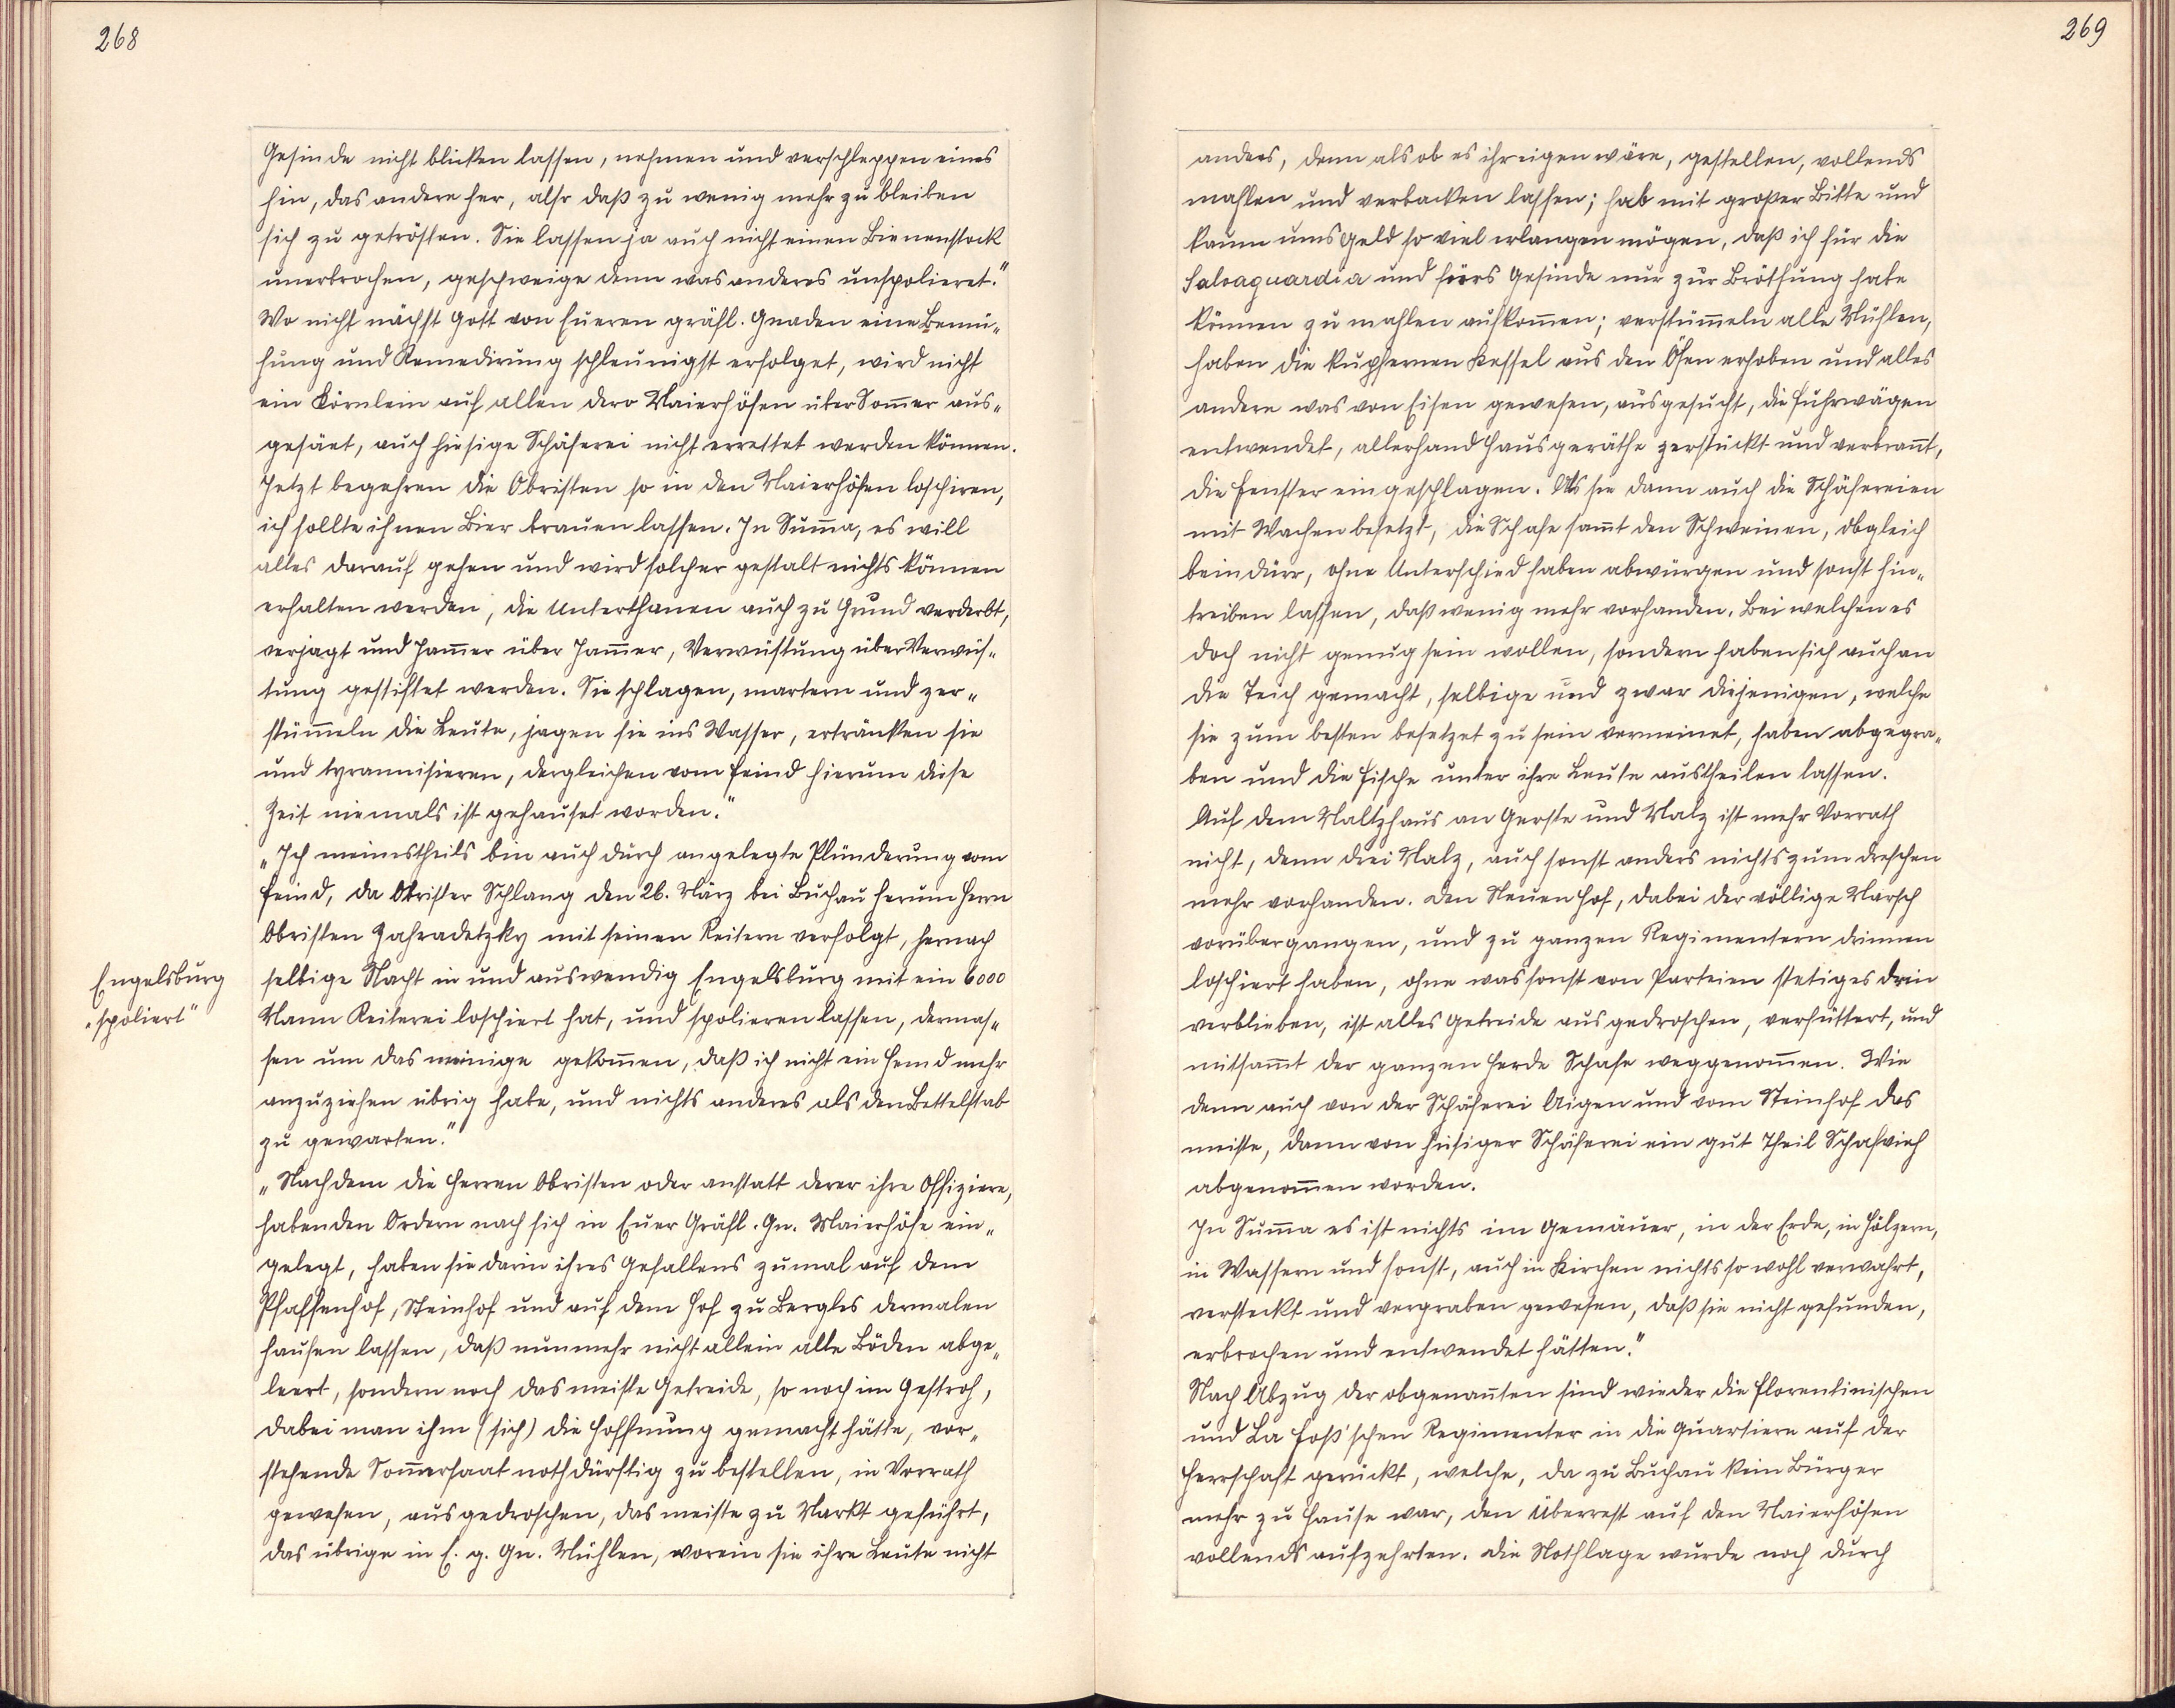 268
Gesinde nicht blicken lassen, nehmen und verschleppen eines
hin, das andere her, also daß zu wenig mehr zu bleiben
sich zu getrösten. Sie lassen ja auch nicht einen Bienenstock
unerbrochen, geschweige denn was anderes unspolieret."
Wo nicht nächst Gott von Eueren gräfl. Gnaden eine Bemü-
hung und Remedirung schleunigst erfolget, wird nicht
ein Körnlein auf allen dero Maierhöfen über Som̅er aus-
gesäet, auch hiesige Schäferei nicht errettet werden können.
Jetzt begehren die Obristen so in den Maierhöfen loschiren,
ich sollte ihnen Bier brauen lassen. In Sum̅a, es will
alles darauf gehen und wird solcher gestalt nichts können
erhalten werden, die Unterthanen auch zu Grund verderbt,
verjagt und Jam̅er über Jam̅er, Verwüstung über Verwüs-
tung gestiftet werden. Sie schlagen, martern und zer-
stüm̅eln die Leute, jagen sie ins Wasser, ertränken sie
und tyrannisieren, dergleichen vom Feind hierum diese
Zeit niemals ist gehauset worden."
„Ich meinestheils bin auch durch angelegte Plünderung vom
Feind, da Obrister Schlang den 26. März bei Buchau herum Herrn
Obristen Zahradetzky mit seinen Reitern verfolgt, hernach
Engelsburg
„spoliert"
selbige Nacht in und auswendig Engelsburg mit ein 6000
Mann Reiterei loschiert hat, und spolieren lassen, dermas-
sen um das meinige gekom̅en, daß ich nicht ein Hemd mehr
anzuziehen übrig habe, und nichts anderes als den Bettelstab
zu gewarten."
„Nachdem die Herren Obristen oder anstatt derer ihre Offiziere,
habenden Ordern nach sich in Euer Gräfl. Gn. Maierhöfe ein-
gelegt, haben sie darin ihres Gefallens zumal auf dem
Pfaffenhof, Steinhof und auf dem Hof zu Bergles dermalen
hausen lassen, daß nunmehr nicht allein alle Böden abge-
leert, sondern noch das meiste Getreide, so noch im Gestroh,
dabei man ihm (sich) die Hoffnung gemacht hätte, vor-
stehende Som̅ersaat nothdürftig zu bestellen, in Vorrath
gewesen, ausgedroschen, das meiste zu Markt geführt,
das übrige in E. g. Gn. Mühlen, worein sie ihre Leute nicht
269
anders, denn als ob es ihr eigen wäre, gestellen, vollends
mahlen und verbacken lassen; hab mit großer Bitte und
kaum ums Geld so viel erlangen mögen, daß ich für die
Salvaguardia und fürs Gesinde nur zur Bröthung habe
können zu mahlen aufkom̅en; verstüm̅eln alle Mühlen,
haben die kupfernen Kessel aus den Öfen erhoben und alles
andere was von Eisen gewesen, ausgesucht, die Fuhrwägen
entwendet, allerhand Hausgeräthe zerstückt und verbran̅t,
die Fenster eingeschlagen. Als sie dann auch die Schäfereien
mit Wachen besetzt, die Schafe sam̅t den Schweinen, obgleich
beindürr, ohne Unterschied haben abwürgen und sonst hin-
treiben lassen, daß wenig mehr vorhanden. Bei welchen es
doch nicht genug sein wollen, sondern haben sich auch an
die Teich gemacht, selbige und zwar diejenigen, welche
sie zum besten besetzet zu sein vermeinet, haben abgegra-
ben und die Fische unter ihre Leute austheilen lassen.
Auf dem Maltzhaus an Gerste und Malz ist mehr Vorrath
nicht, denn drei Malz, auch sonst anders nichts zum dreschen
mehr vorhanden. Den Neuen Hof, dabei der völlige Marsch
vorübergangen, und zu ganzen Regimentern drinnen
loschiert haben, ohne was sonst von Parteien stetiges drin
verblieben, ist alles Getreide ausgedroschen, verfüttert, und
mitsam̅t der ganzen Herde Schafe weggenom̅en. Wie
denn auch von der Schäferei Aigen und vom Steinhof das
meiste, dann von hiesiger Schäferei ein gut Theil Schafvieh
abgenom̅en worden.
In Sum̅a es ist nichts im Gemäuer, in der Erde, in Hölzern,
in Wassern und sonst, auch in Kirchen nichts so wohl verwahrt,
versteckt und vergraben gewesen, daß sie nicht gefunden,
erbrochen und entwendet hätten."
Nach Abzug der obgenan̅ten sind wieder die Florentinischen
und La Foß'schen Regimenter in die Quartiere auf der
Herrschaft gerückt, welche, da zu Buchau kein Bürger
mehr zu Hause war, den Überrest auf den Maierhöfen
vollends aufzehrten. Die Nothlage wurde noch durch